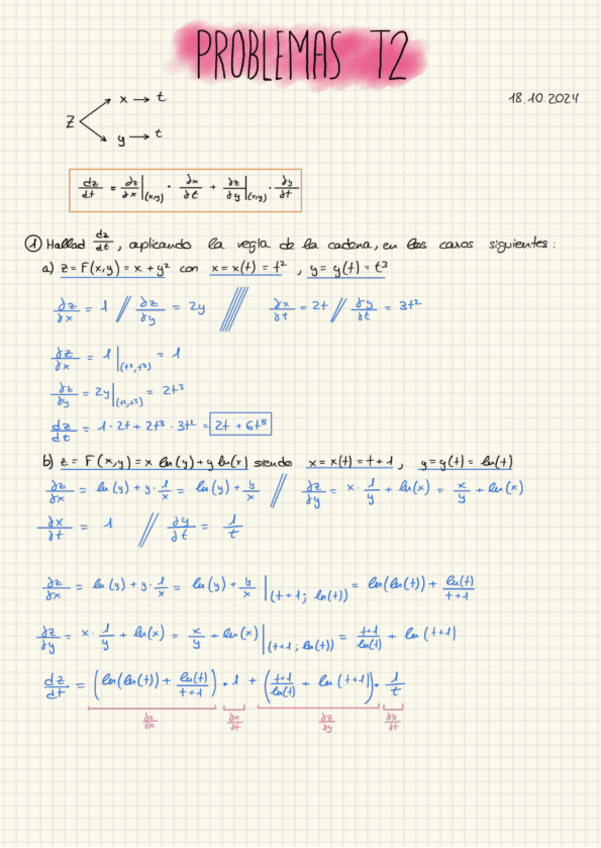 PROBLEMAS T2
18.10.2024
x → t
z
y → t
dz/dt = ∂z/∂x|(x,y) · ∂x/∂t + ∂z/∂y|(x,y) · ∂y/∂t
① Hallad dz/dt, aplicando la regla de la cadena, en los casos siguientes:
a) z = F(x,y) = x + y² con x = x(t) = t², y = y(t) = t³
∂z/∂x = 1 // ∂z/∂y = 2y //// ∂x/∂t = 2t // ∂y/∂t = 3t²
∂z/∂x = 1|(t²,t³) = 1
∂z/∂y = 2y|(t²,t³) = 2t³
dz/dt = 1 · 2t + 2t³ · 3t² = 2t + 6t⁵
b) z = F(x,y) = x ln(y) + y ln(x) siendo x = x(t) = t + 1, y = y(t) = ln(t)
∂z/∂x = ln(y) + y · 1/x = ln(y) + y/x // ∂z/∂y = x · 1/y + ln(x) = x/y + ln(x)
∂x/∂t = 1 // ∂y/∂t = 1/t
∂z/∂x = ln(y) + y · 1/x = ln(y) + y/x |(t+1; ln(t)) = ln(ln(t)) + ln(t)/t+1
∂z/∂y = x · 1/y + ln(x) = x/y + ln(x)|(t+1; ln(t)) = t+1/ln(t) + ln(t+1)
dz/dt = (ln(ln(t)) + ln(t)/t+1) · 1 + (t+1/ln(t) + ln(t+1)) · 1/t
∂z/∂x ∂x/∂t ∂z/∂y ∂y/∂t